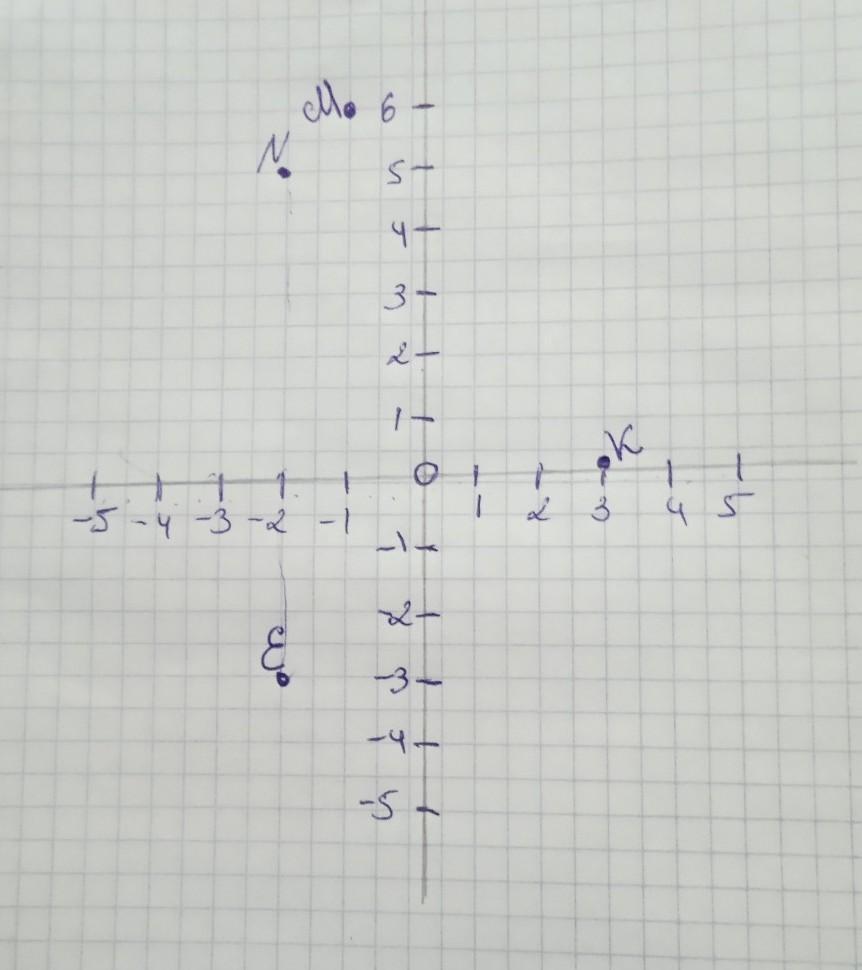 M 6
N
5
4
3
2
1
K
O
-5 -4 -3 -2 -1 1 2 3 4 5
-1
-2
E
-3
-4
-5